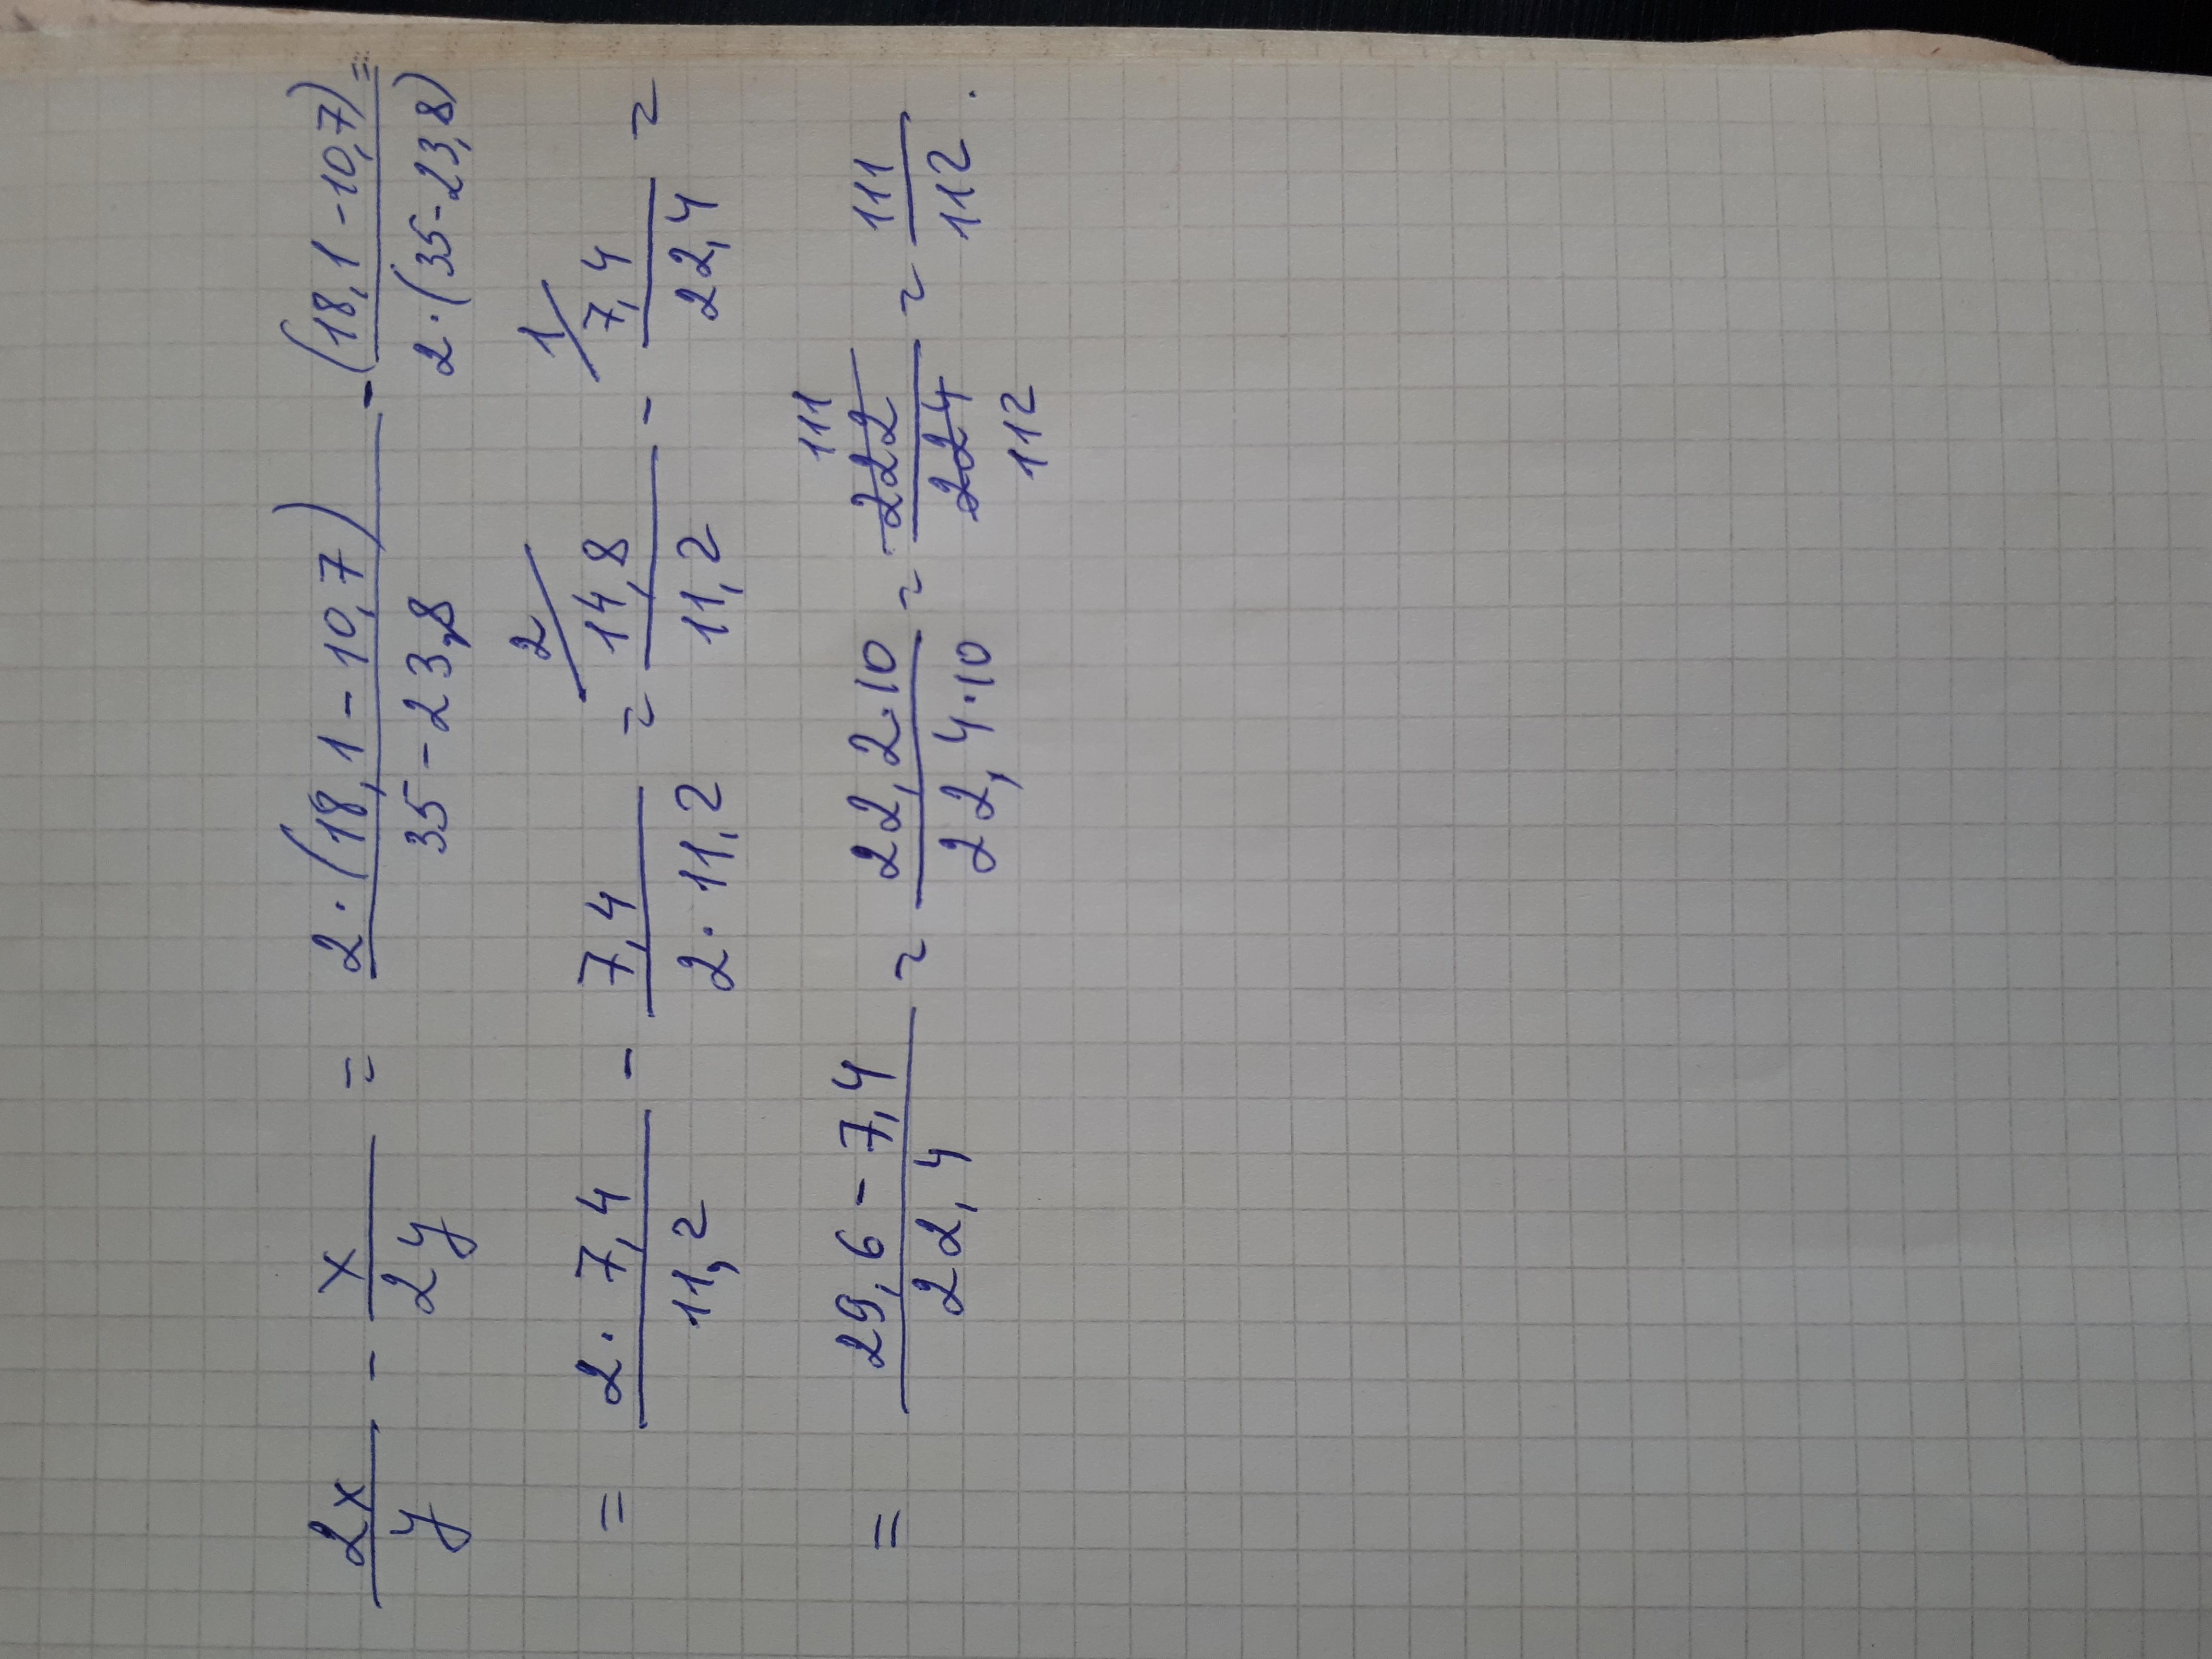 2x/y - x/2y = 2·(18,1-10,7)/35-23,8 - (18,1-10,7)/2·(35-23,8) =
= 2·7,4/11,2 - 7,4/2·11,2 = 2/ 14,8/11,2 - 1/ 7,4/22,4 =
= 29,6-7,4/22,4 = 22,2·10/22,4·10 = 222 111/224 112 = 111/112.